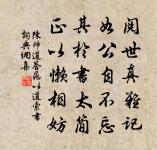 閱世真難記
如公自不忘
其於書太簡
正以懶相妨
陳師道答晁以道索書
詞典網集